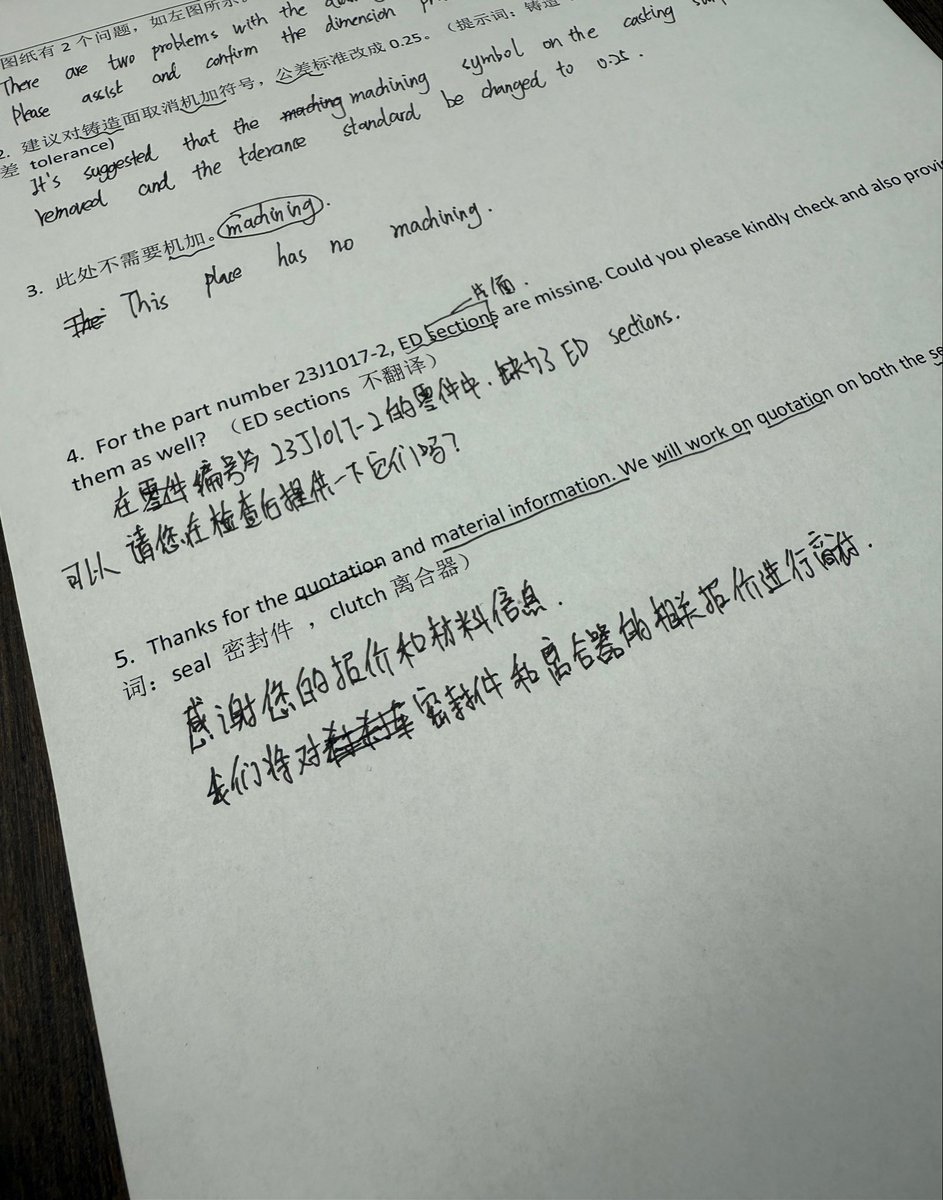 图纸有 2 个问题，如左图所示。
There are two problems with the
Please assist and confirm the dimension
2. 建议对铸造面取消机加符号，公差标准改成 0.25。（提示词：铸造
差 tolerance)
It's suggested that the maching machining symbol on the casting
removed and the tderance standard be changed to 0.25.
3. 此处不需要机加。 machining.
The This place has no machining.
性面.
4. For the part number 23J1017-2, ED sections are missing. Could you please kindly check and also
them as well? （ED sections 不翻译）
在零件编号为 23J1017-2的零件中，缺少了 ED sections.
可以 请您在检查后提供一下它们吗？
5. Thanks for the quotation and material information. We will work on quotation on both the
词：seal 密封件 ，clutch 离合器）
感谢您的报价和材料信息.
我们将对 密封件和离合器的相关报价进行